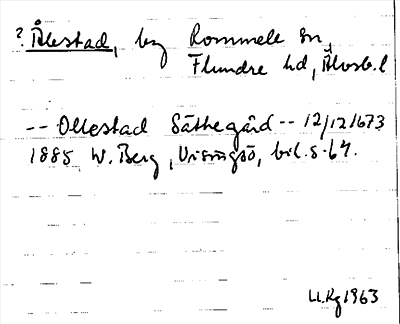 ? Ålestad, by Rommele sn,
Flundre hd, Älvsb.l
-- Ollestad Säthegård -- 12/12 1673
1885 W. Berg, Visingsö, bil. s. 64.
Ll.Kg 1963